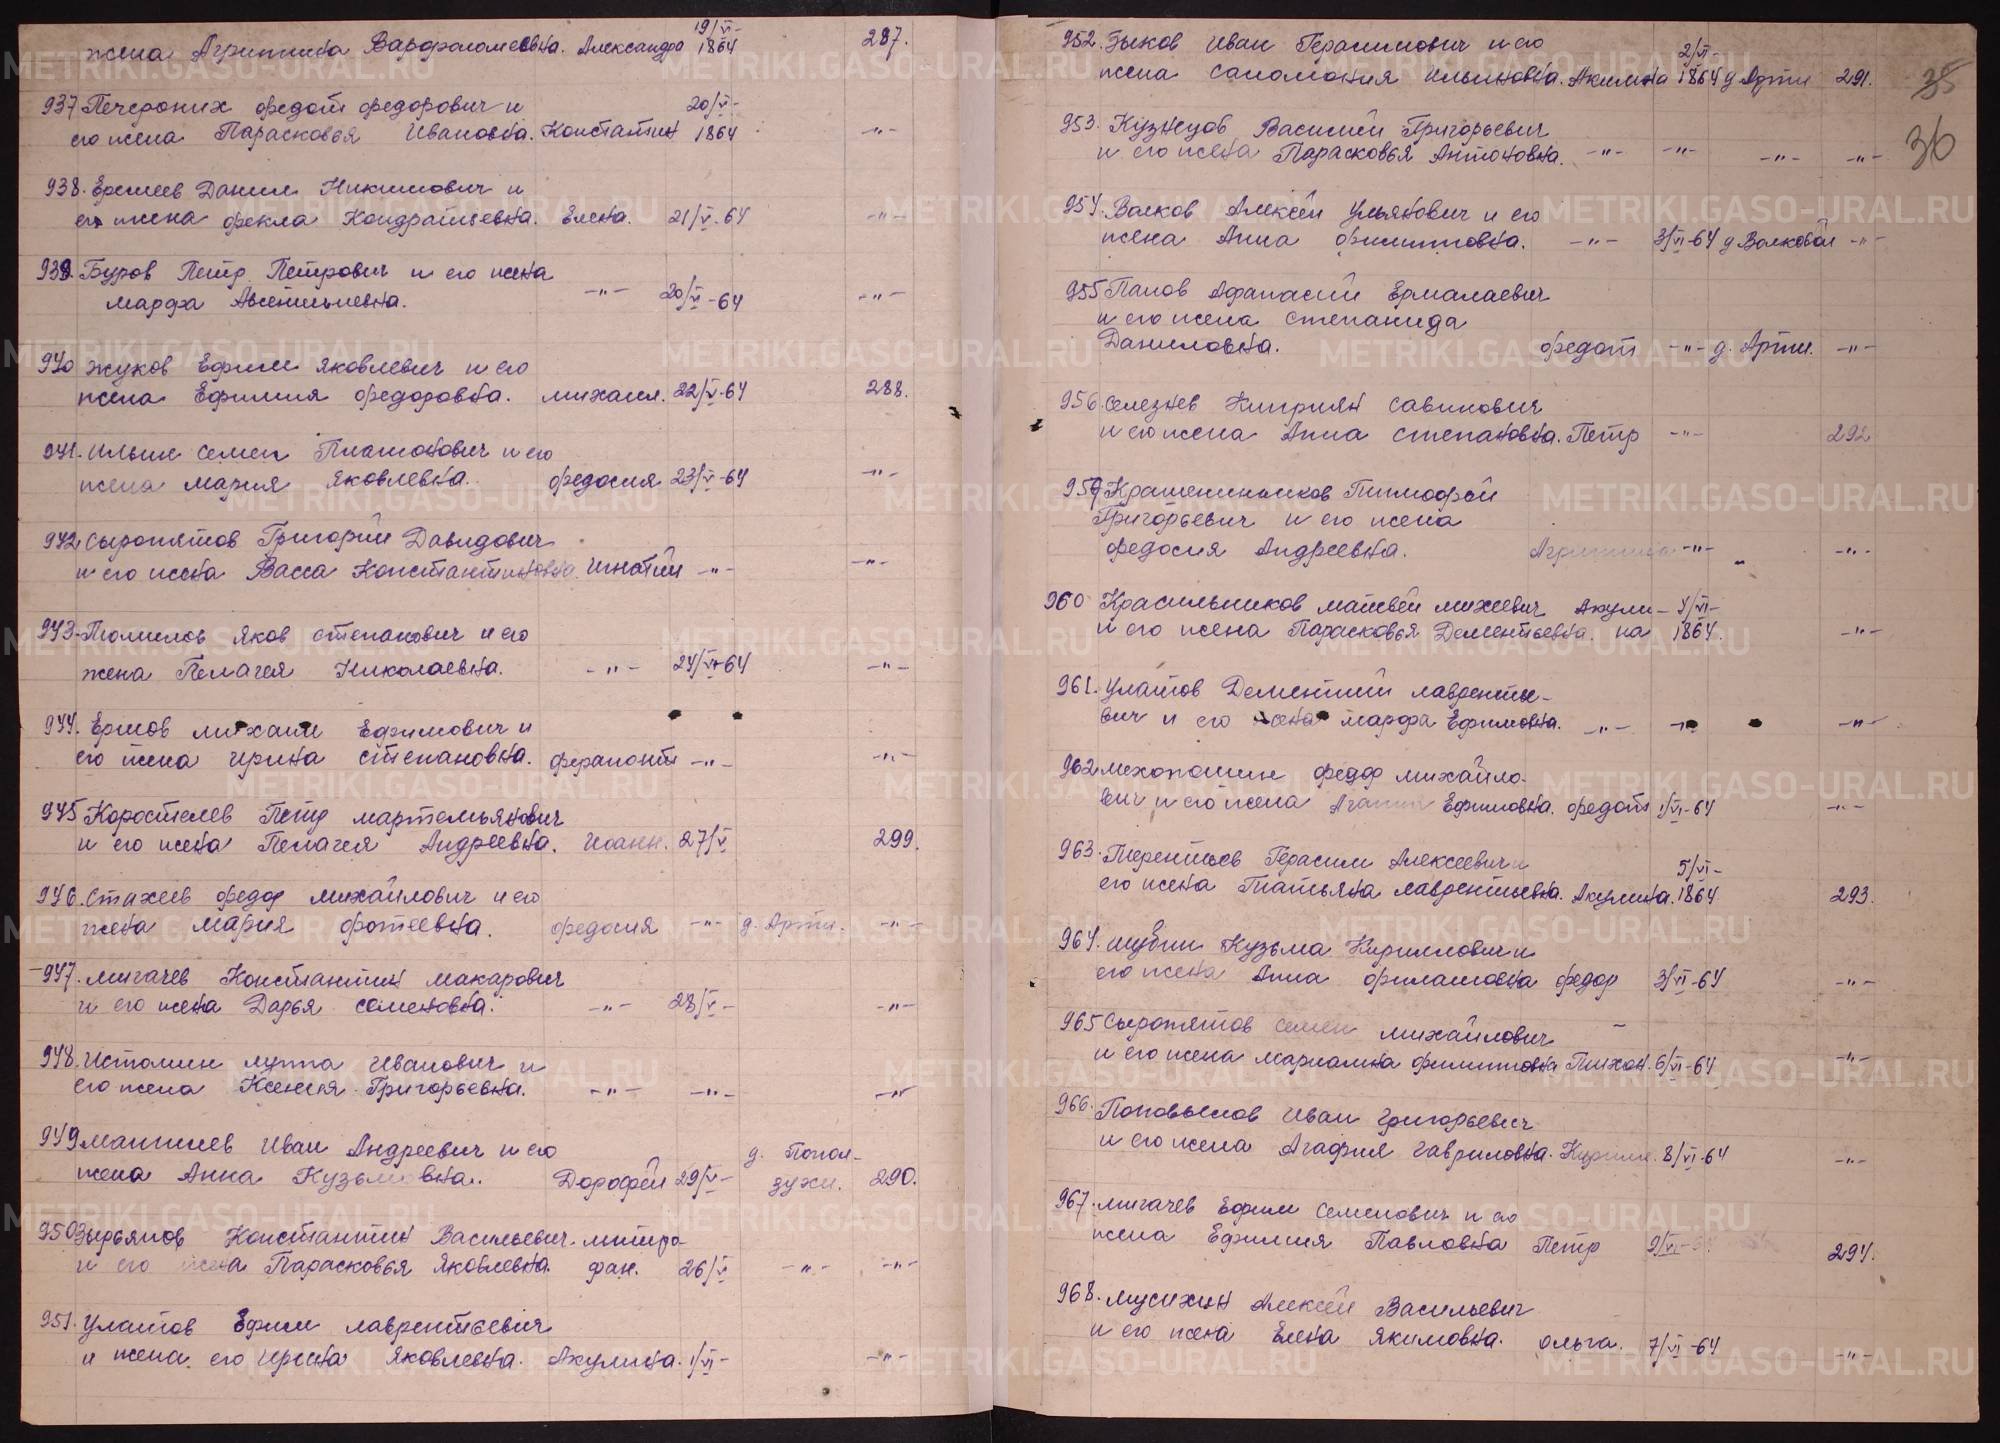 жена Агрипина Варфоломеевна. Александра 19/V- 1864 287.
937 Печерских Федот Федорович и 20/V-
его жена Парасковья Ивановна. Константин 1864 -"-
938. Ершеев Данил Никитович и
его жена Фекла Кондратьевна. Елена. 21/V-64 -"-
939. Буров Петр Петрович и его жена
Марфа Авсентьевна. -"- 20/V-64 -"-
940 Жуков Ефим Яковлевич и его
жена Ефимия Федоровна. Михаил. 22/V-64 288.
941. Ильин Семен Платонович и его
жена Мария Яковлевна. Федосия 23/V-64 -"-
942. Сыропятов Григорий Давидович
и его жена Васса Константиновна. Игнатий -"- -"-
943. Томилов Яков Степанович и его
жена Пелагея Николаевна. -"- 24/V-64 -"-
944. Ершов Михаил Ефимович и
его жена Ирина Степановна. Ферапонт -"- -"-
945 Коростелев Петр Мартемьянович
и его жена Пелагея Андреевна. Иоанн. 27/V 299.
946. Стахеев Федор Михайлович и его
жена Мария Фотеевна. Федосия -"- д. Арти. -"-
947. Мигачев Константин Макарович
и его жена Дарья Семеновна. -"- 28/V- -"-
948. Истомин Луппа Иванович и
его жена Ксения Григорьевна. -"- -"- -"-
949 Иван Андреевич и его д. Попол-
жена Анна Кузьмовна. Дорофей 29/V- зухи. 290.
950 Зырьянов Константин Васильевич. Митро-
и его жена Парасковья Яковлевна. фан. 26/V -"- -"-
951. Улатов Ефим Лаврентьевич
и жена его Ирина Яковлевна. Акулина. 1/VI- -"-
35
36
952. Зыков Иван Герасимович и его 2/VI-
жена Саломония Ильиновна. Акилина 1864 д Арти 291.
953. Кузнецов Василий Григорьевич
и его жена Парасковья Антоновна. -"- -"- -"- -"-
954. Волков Алексей Ульянович и его
жена Анна Филипповна. -"- 3/VI-64 д Волковой -"-
955 Панов Афанасий Ермалаевич
и его жена Степанида
Даниловна. Федот -"- д. Арти. -"-
956. Селезнев Киприян Савинович
и его жена Анна Степановна. Петр -"- 292
959 Крашенинников Тимофей
Григорьевич и его жена
Федосия Андреевна. Агрипина -"- -"-
960 Красильников Матвей Михеевич Акули- 4/VI-
и его жена Парасковья Дементьевна. на 1864. -"-
961. Улатов Дементий Лавренте-
вич и его жена Марфа Ефимовна. -"- -"- -"-
962 Мехоношин Федор Михайло-
вич и его жена Ефимовна. Федот 1/VI-64 -"-
963. Терентьев Герасим Алексеевич и 5/VI-
его жена Татьяна Лаврентьевна. Акулина. 1864 293.
964. Шубин Кузьма Кириллович и
его жена Анна Филатовна Федор 3/VI-64 -"-
965 Сыропятов Семен Михайлович
и его жена Мариамна Филипповна Тихон. 6/VI-64 -"-
966. Иван Григорьевич
и его жена Агафия Гавриловна. Кирилл. 8/VI-64 -"-
967. Мигачев Ефим Семенович и его
жена Ефимия Павловна Петр 9/VI-64 294.
968. Мусихин Алексей Васильевич
и его жена Елена Якимовна. Ольга. 7/VI-64 -"-
METRIKI.GASO-URAL.RU